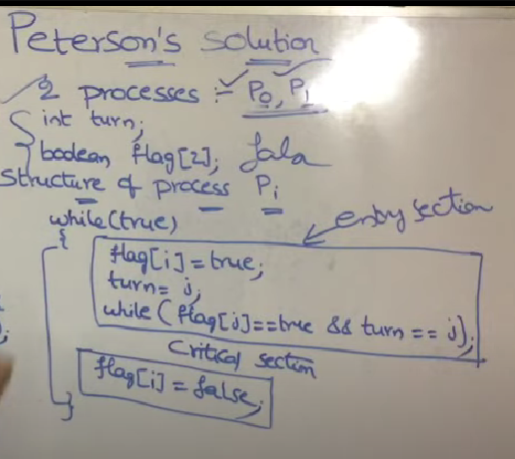 Peterson's solution
2 processes :- P0, P1
int turn;
boolean flag[2]; fala
structure of process Pi
while(true) entry section
{
flag[i]=true;
turn= j;
while (flag[j]==true && turn == j);
critical section
flag[i] = false;
}